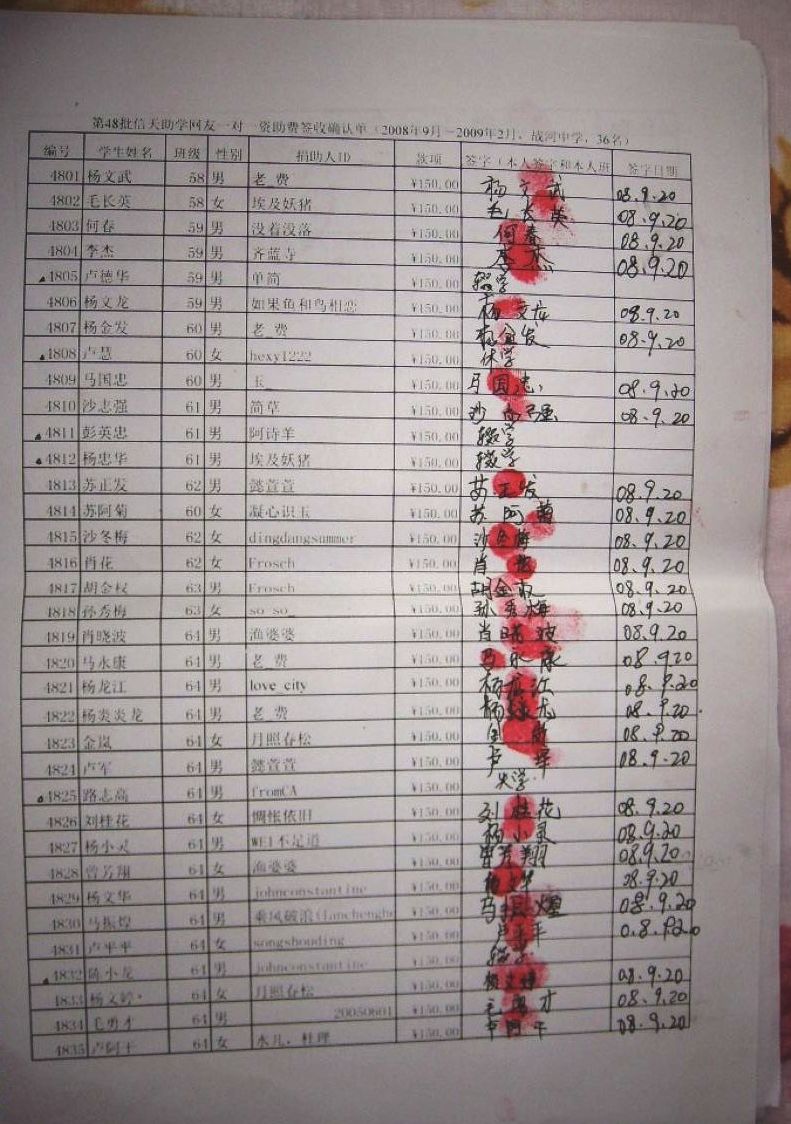 第48批信天助学网友一对一资助费签收确认单（2008年9月－2009年2月，战河中学，36名）
编号 学生姓名 班级 性别 捐助人ID 款项 签字（本人签字和本人班 签字日期
4801 杨文武 58 男 老 费 ¥150.00 杨文武 08.9.20
4802 毛长英 58 女 埃及妖猪 ¥150.00 毛长英 08.9.20
4803 何春 59 男 没着没落 ¥150.00 何春 08.9.20
4804 李杰 59 男 齐蓝寺 ¥150.00 李杰 08.9.20
4805 卢德华 59 男 单简 ¥150.00 辍学
4806 杨文龙 59 男 如果鱼和鸟相恋 ¥150.00 杨文龙 08.9.20
4807 杨金发 60 男 老 费 ¥150.00 杨金发 08.9.20
4808 卢慧 60 女 hexy1222 ¥150.00 休学
4809 马国忠 60 男 玉_ ¥150.00 马国忠 08.9.20
4810 沙志强 61 男 简草 ¥150.00 沙志强 08.9.20
4811 彭英忠 61 男 阿诗羊 ¥150.00 辍学
4812 杨忠华 61 男 埃及妖猪 ¥150.00 辍学
4813 苏正发 62 男 懿萱萱 ¥150.00 苏正发 08.9.20
4814 苏阿菊 60 女 凝心识玉 ¥150.00 苏阿菊 08.9.20
4815 沙冬梅 62 女 dingdangsummer ¥150.00 沙冬梅 08.9.20
4816 肖花 62 女 Frosch ¥150.00 肖花 08.9.20
4817 胡金权 63 男 Frosch ¥150.00 胡金权 08.9.20
4818 孙秀梅 63 女 so_so_ ¥150.00 孙秀梅 08.9.20
4819 肖晓波 64 男 渔婆婆 ¥150.00 肖晓波 08.9.20
4820 马永康 64 男 老 费 ¥150.00 马永康 08.9.20
4821 杨龙江 64 男 love_city ¥150.00 杨龙江 08.9.20
4822 杨炎炎龙 64 男 老 费 ¥150.00 08.9.20.
4823 金岚 64 女 月照春松 ¥150.00 08.9.20
4824 卢军 64 男 懿萱萱 ¥150.00 卢军 08.9.20
4825 路志高 64 男 fromCA ¥150.00 失学
4826 刘桂花 64 女 惆怅依旧 ¥150.00 刘桂花 08.9.20
4827 杨小灵 64 男 WEI不足道 ¥150.00 杨小灵 08.9.20
4828 曾芳翔 64 女 渔婆婆 ¥150.00 曾芳翔 08.9.20
4829 杨文华 64 男 johnconstantine ¥150.00 杨文华 08.9.20
4830 马振煌 64 男 乘风破浪(lanchengho ¥150.00 马振煌 08.9.20
4831 卢平平 64 女 songshouding ¥150.00 卢平平 0.8.9.20
4832 陈小龙 64 男 johnconstantine ¥150.00 辍学
4833 杨文婷 64 女 月照春松 ¥150.00 杨文婷 08.9.20
4834 毛勇才 64 男 20050601 ¥150.00 毛勇才 08.9.20
4835 卢阿干 64 女 水儿，杜理 ¥150.00 卢阿干 08.9.20